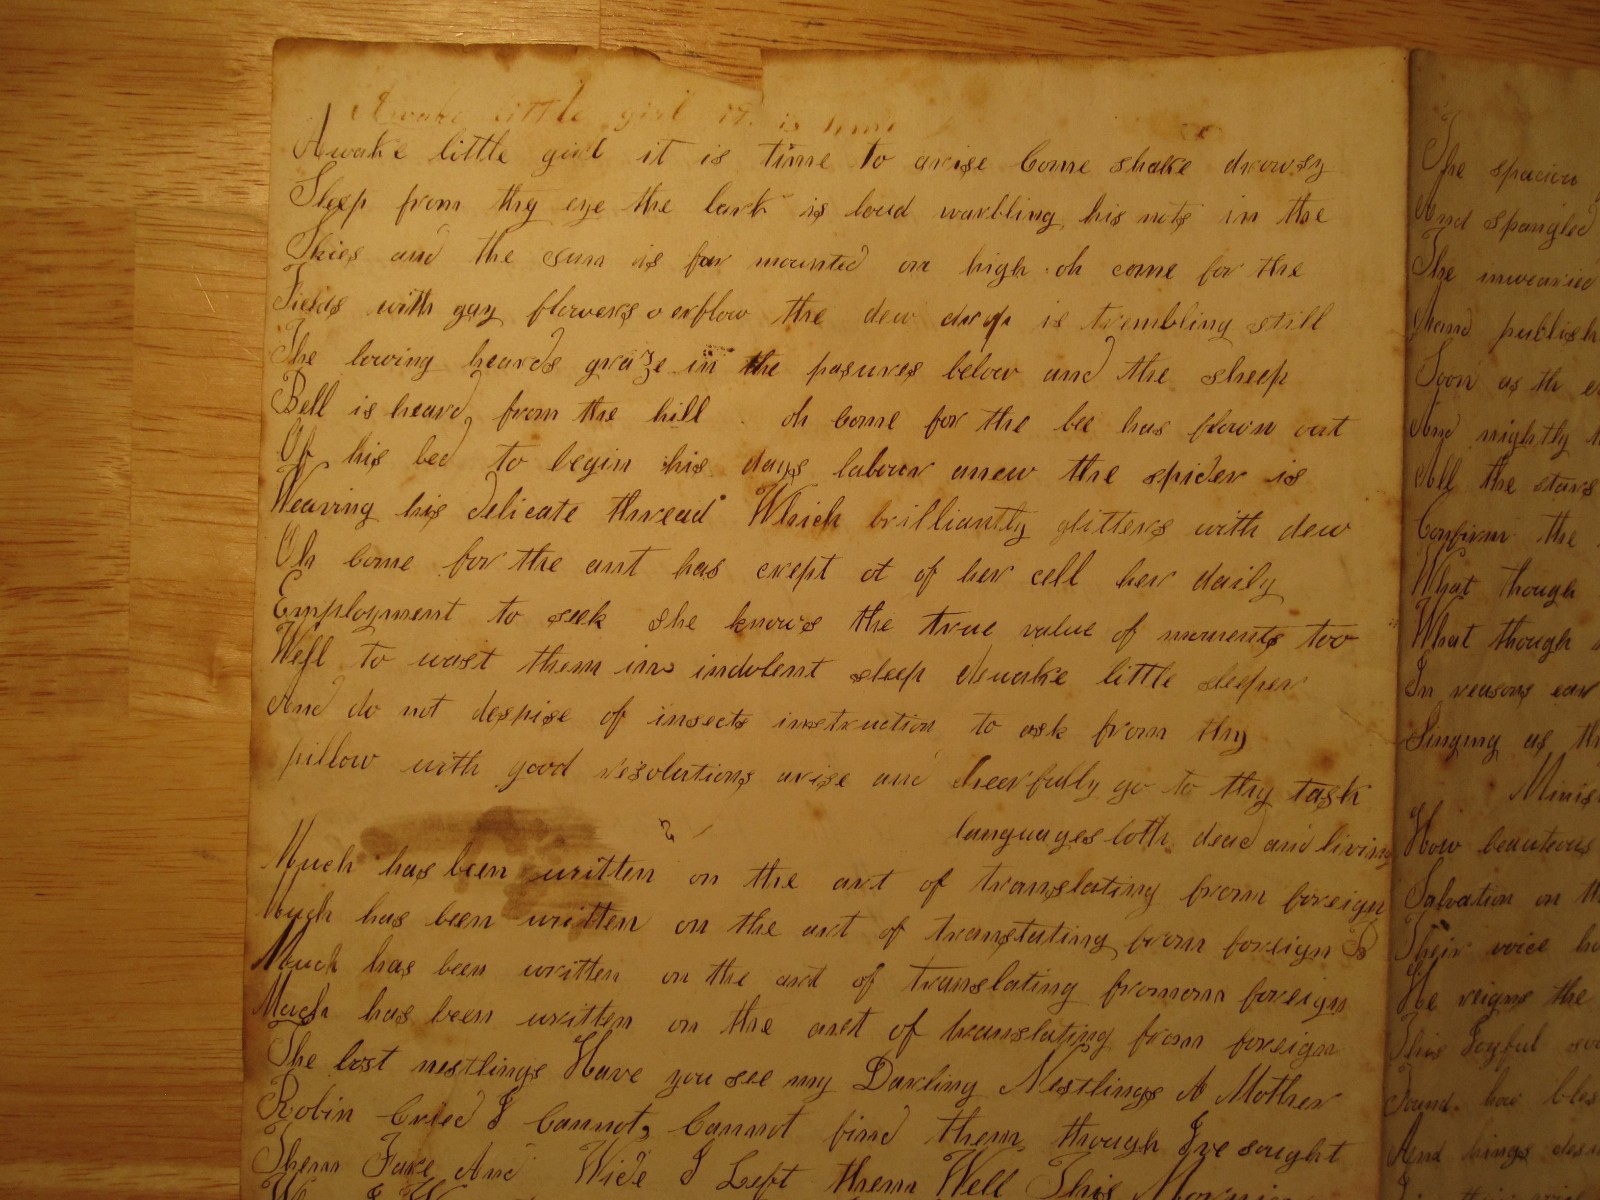 Awake little girl it is time
Awake little girl it is time to arise Come shake drowsy
Sleep from thy eye the lark is loud warbling his nots in the
Skies and the sun is far mounted on high oh come for the
Fields with gay flowers overflow the dew drop is trembling still
The lowing heards graze in the pasures below and the sheep
Bell is heard from the hill oh come for the bee has flown out
Of his bed to begin his days labour anew the spider is
Weaving his delicate thread Which brilliantly glitters with dew
Oh come for the ant has crept ot of her cell her daily
Employment to seek she knows the true value of moments too
Well to wast them in indolent sleep Awake little sleeper
And do not despise of insects instruction to ask from thy
pillow with good resolutions arise and cheerfully go to thy task
languages both dead and living
Much has been written on the art of translating from foreign
Much has been written on the art of translating from foreign
Much has been written on the art of translating fromom foreign
Much has been written on the art of translating from foreign
The lost nestlings Have you see my Darling Nestlings A Mother
Robin Cried I Cannot, Cannot find them though I've sought
Them Fare And Wide I Left them Well This
The spacious
And spangled
The unwearied
And publish
Soon as th
And nightly
All the stars
Confirm the
What though
What though
In reasons ear
Singing as th
Minis
How beauteous
Salvation on th
Their voice
He reigns the
This Joyful
Found how bles
And kings